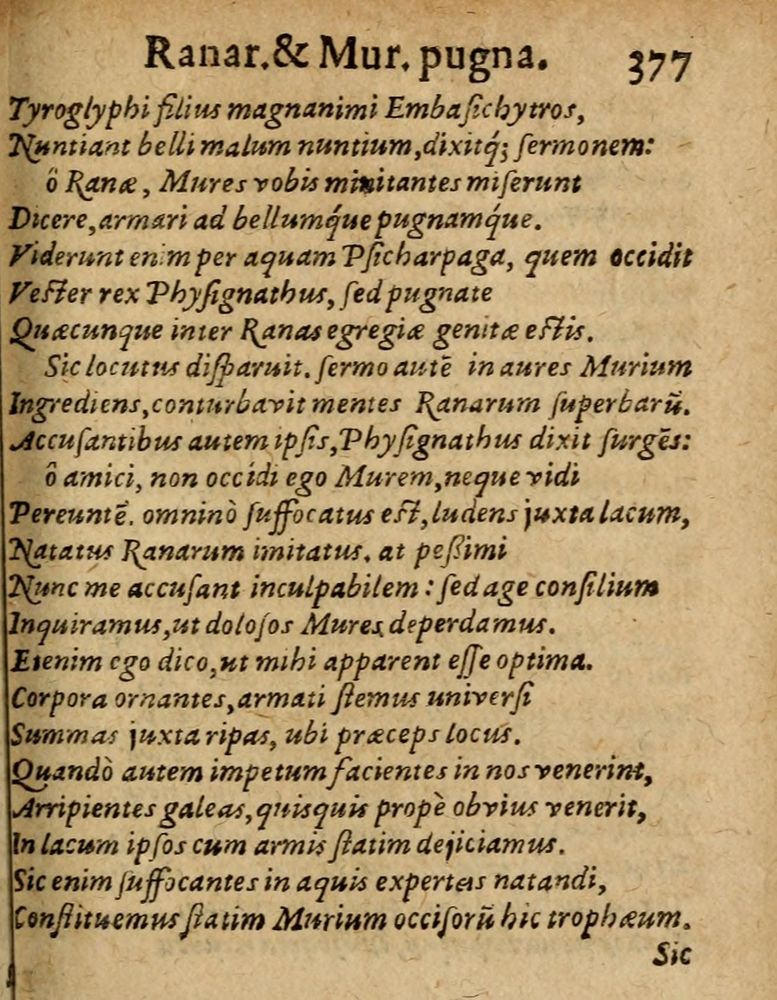 Ranar. & Mur. pugna. 377
Tyroglyphi filius magnanimi Embaſichytros,
Nuntiant belli malum nuntium, dixitq́; ſermonem:
ô Ranæ, Mures vobis minitantes miſerunt
Dicere, armari ad bellumq́ue pugnamq́ue.
Viderunt enim per aquam Pſicharpaga, quem occidit
Veſter rex Phyſignathus, ſed pugnate
Quæcunque inter Ranas egregiæ genitæ eſtis.
Sic locutus diſparuit. ſermo autē in aures Murium
Ingrediens, conturbavit mentes Ranarum ſuperbarū.
Accuſantibus autem ipſis, Phyſignathus dixit ſurgēs:
ô amici, non occidi ego Murem, neque vidi
Pereuntē. omninò ſuffocatus eſt, ludens juxta lacum,
Natatus Ranarum imitatus. at peſsimi
Nunc me accuſant inculpabilem: ſed age conſilium
Inquiramus, ut doloſos Mures deperdamus.
Etenim ego dico, ut mihi apparent eſſe optima.
Corpora ornantes, armati ſtemus univerſi
Summas juxta ripas, ubi præceps locus.
Quandò autem impetum facientes in nos venerint,
Arripientes galeas, quisquis propè obvius venerit,
In lacum ipſos cum armis ſtatim dejiciamus.
Sic enim ſuffocantes in aquis expertes natandi,
Conſtituemus ſtatim Murium occiſorū hic trophæum.
Sic